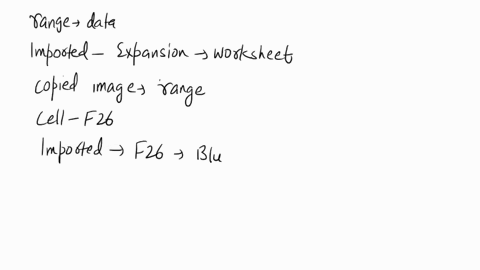 range → data
Imported - Expansion → worksheet
copied image → range
Cell - F26
Imported → F26 → Blu